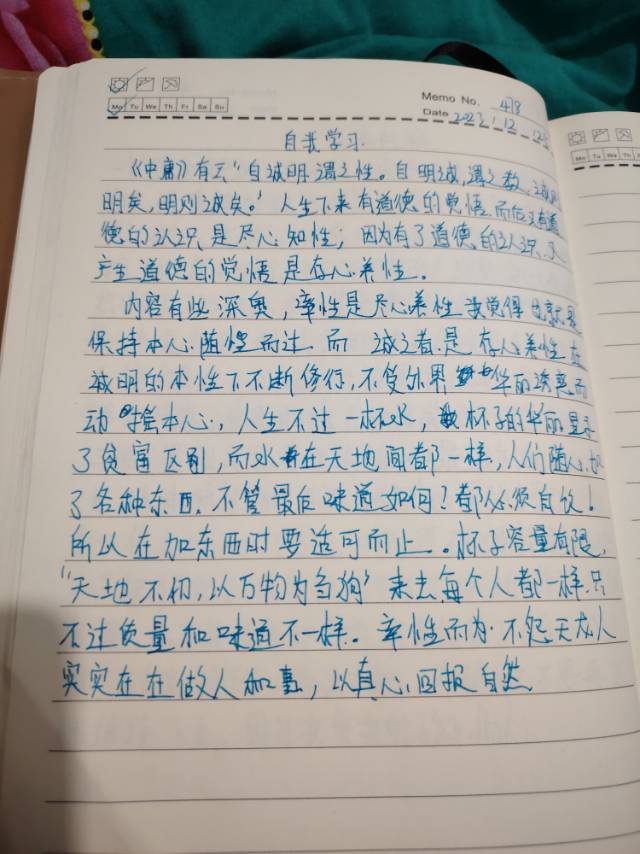 Memo No. 418
Mo Tu We Th Fr Sa Su
Date 2023.12.12
自我学习.
《中庸》有云"自诚明,谓之性。自明诚,谓之教,诚则
明矣,明则诚矣。"人生下来有道德的觉悟而后又有道
德的认识是尽心知性;因为有了道德的认识,又
产生道德的觉悟是存心养性。
内容有些深奥,率性是尽心养性我觉得
保持本心随性而过.而诚之者是存心养性在
诚明的本性下不断修行,不受外界华丽诱惑而
动摇本心,人生不过一杯水,杯子的华丽显示
了贫富区别,而水在天地间都一样,人们随心加
了各种东西,不管最后味道如何?都必须自饮!
所以在加东西时要适可而止。杯子容量有限,
"天地不仁,以万物为刍狗"来去每个人都一样.只
不过质量和味道不一样。率性而为.不怨天尤人
实实在在做人和事,以真心回报自然